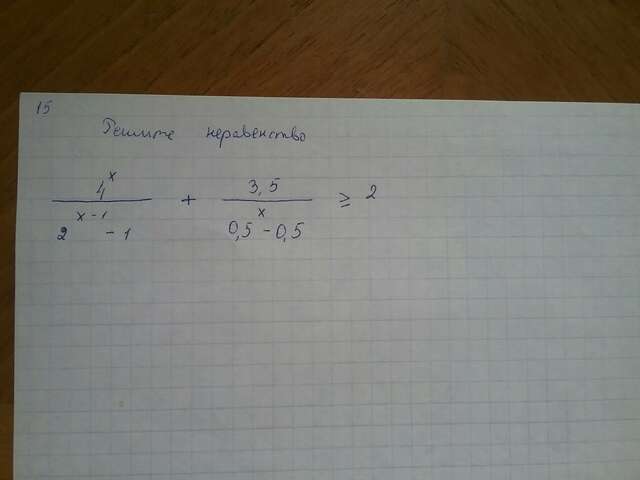 15
Решите неравенство
4^x / (2^(x-1) - 1) + 3,5 / (0,5^x - 0,5) ≥ 2